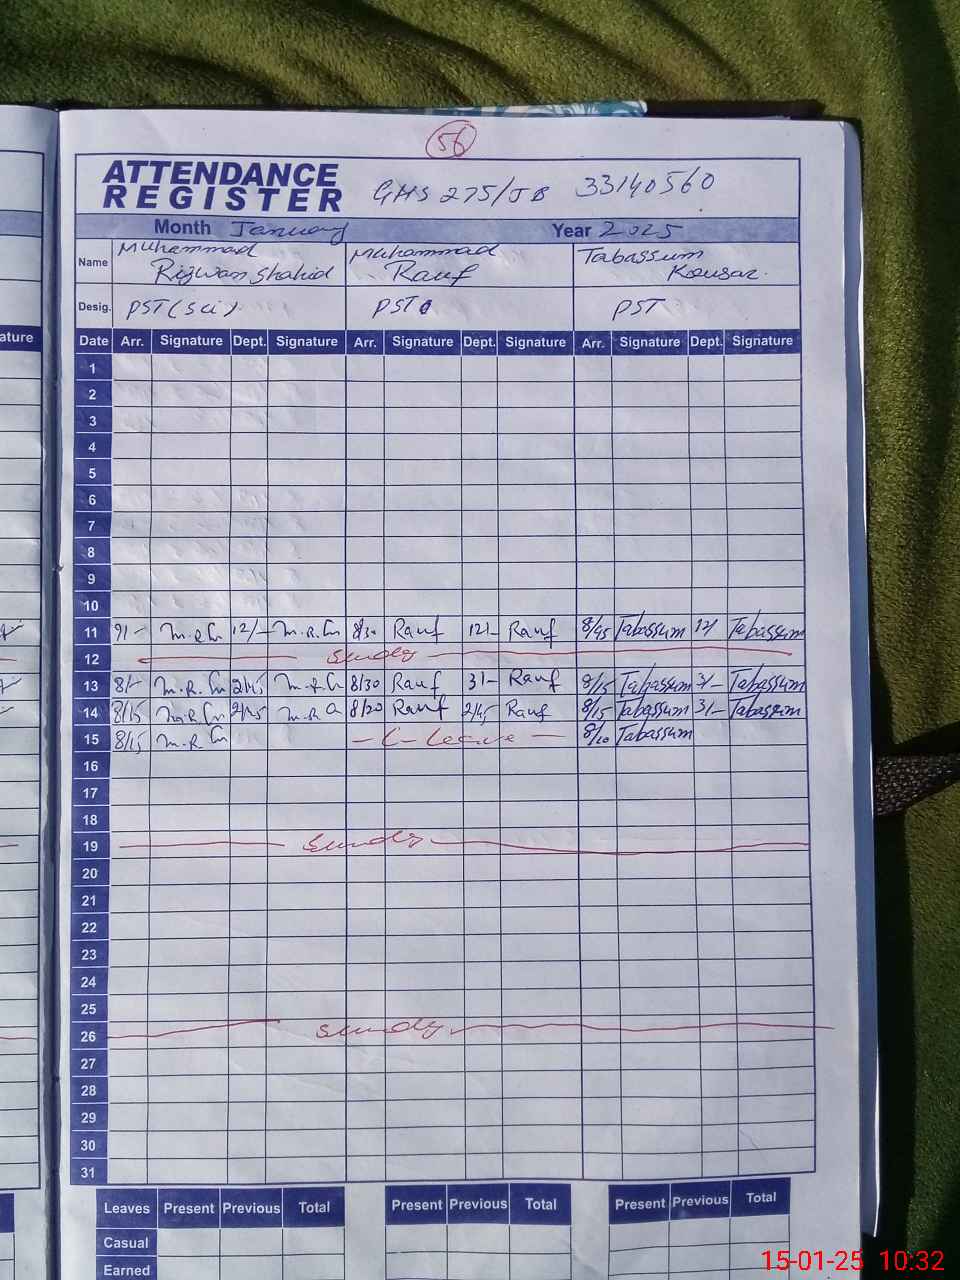 56
ATTENDANCE
REGISTER
GHS 275/JB 33140560
Month January Year 2025
Name Muhammad Rizwan Shahid Muhammad Rauf Tabassum Kousar
Desig. PST (Sci) PST PST
ature Date Arr. Signature Dept. Signature Arr. Signature Dept. Signature Arr. Signature Dept. Signature
1
2
3
4
5
6
7
8
9
10
11 9/- 12/- 8/30 Rauf 12/- Rauf 8/45 Tabassum 12/ Tabassum
12 Sunday
13 8/- 2/45 8/30 Rauf 3/- Rauf 8/15 Tabassum 3/- Tabassum
14 8/15 2/45 8/30 Rauf 2/45 Rauf 8/15 Tabassum 3/- Tabassum
15 8/15 - C - Leave - 8/10 Tabassum
16
17
18
19 Sunday
20
21
22
23
24
25
26 Sunday
27
28
29
30
31
Leaves Present Previous Total Present Previous Total Present Previous Total
Casual
Earned
15-01-25 10:32